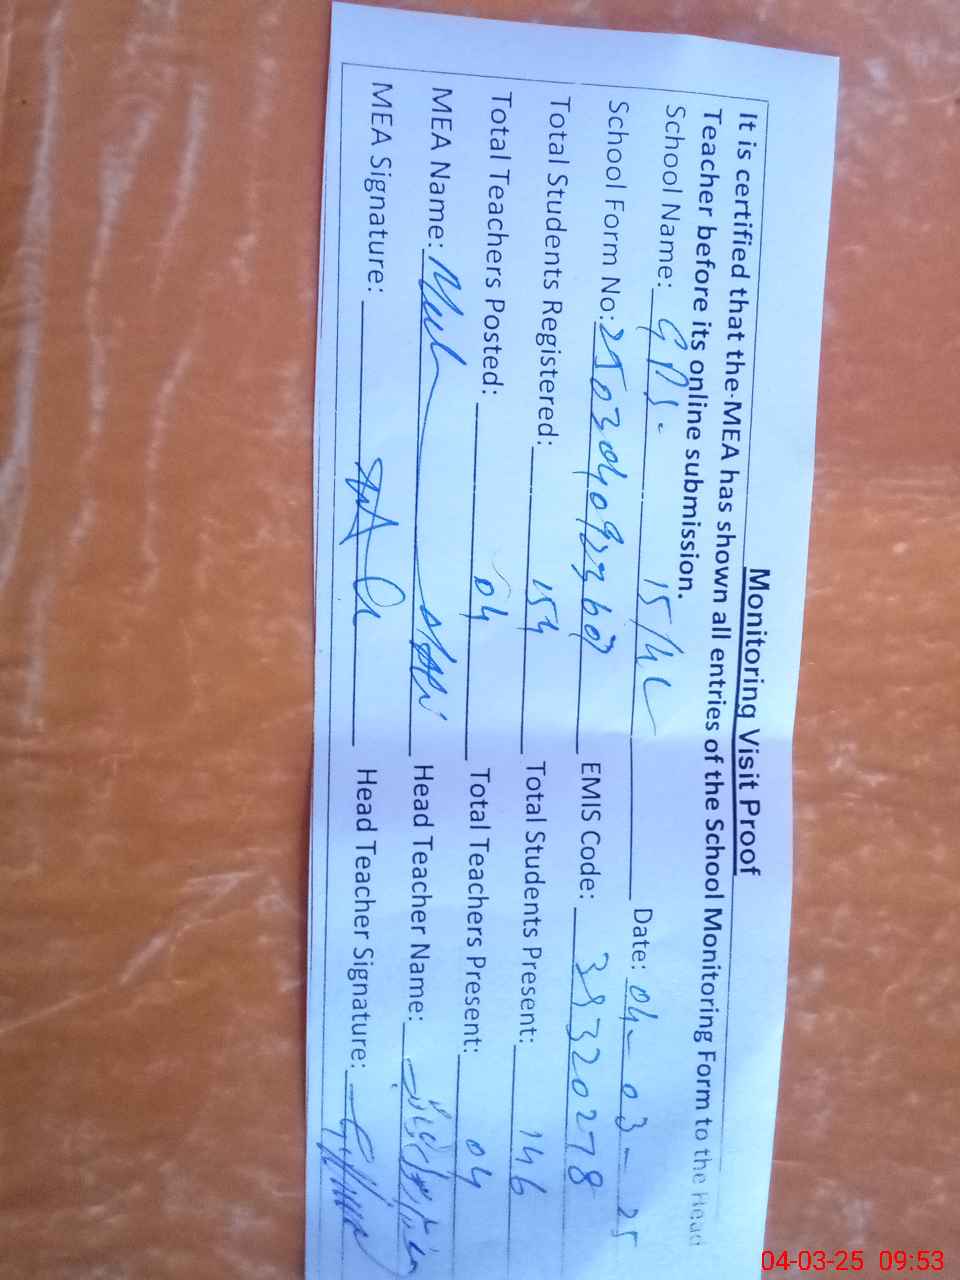 Monitoring Visit Proof
It is certified that the MEA has shown all entries of the School Monitoring Form to the Head
Teacher before its online submission.
School Name: GPS. 15/4L Date: 04-03-25
School Form No: EMIS Code: 39320278
Total Students Registered: 154 Total Students Present: 146
Total Teachers Posted: 04 Total Teachers Present: 04
MEA Name: Head Teacher Name:
MEA Signature: Head Teacher Signature:
04-03-25 09:53